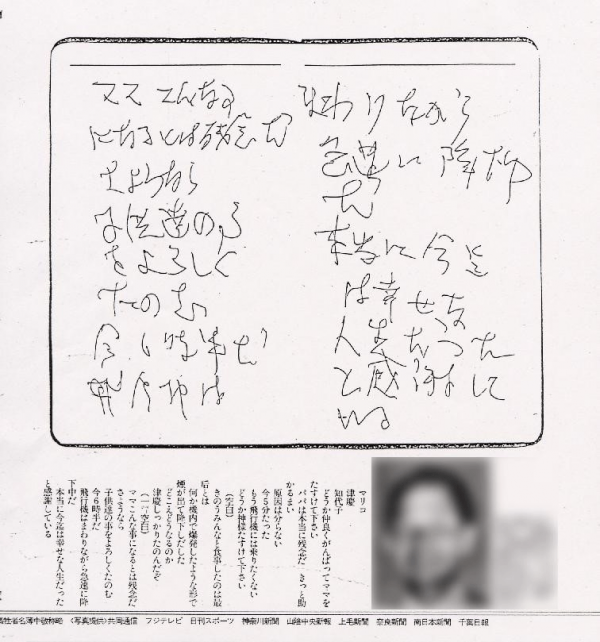 ママ こんな事
になるとは残念だ
さようなら
子供達の事
をよろしく
たのむ
今6時半だ
飛行機は
まわりながら
急速に降下中
だ
本当に今迄
は幸せな
人生だった
と感謝して
いる
マリコ
津慶
知代子
どうか仲良くがんばってママを
たすけて下さい
パパは本当に残念だ きっと助
かるまい
原因は分らない
今5分たった
もう飛行機には乗りたくない
どうか神様たすけて下さい
(空白)
きのうみんなと食事したのは最
后とは
何か機内で爆発したような形で
煙が出て降下しだした
どこえどうなるのか
津慶しっかりたのんだぞ
(一行空白)
ママこんな事になるとは残念だ
さようなら
子供達の事をよろしくたのむ
今6時半だ
飛行機はまわりながら急速に降
下中だ
本当に今迄は幸せな人生だった
と感謝している
犠牲者名簿中敬称略 〈写真提供〉共同通信 フジテレビ 日刊スポーツ 神奈川新聞 山陰中央新報 上毛新聞 奈良新聞 南日本新聞 千葉日報